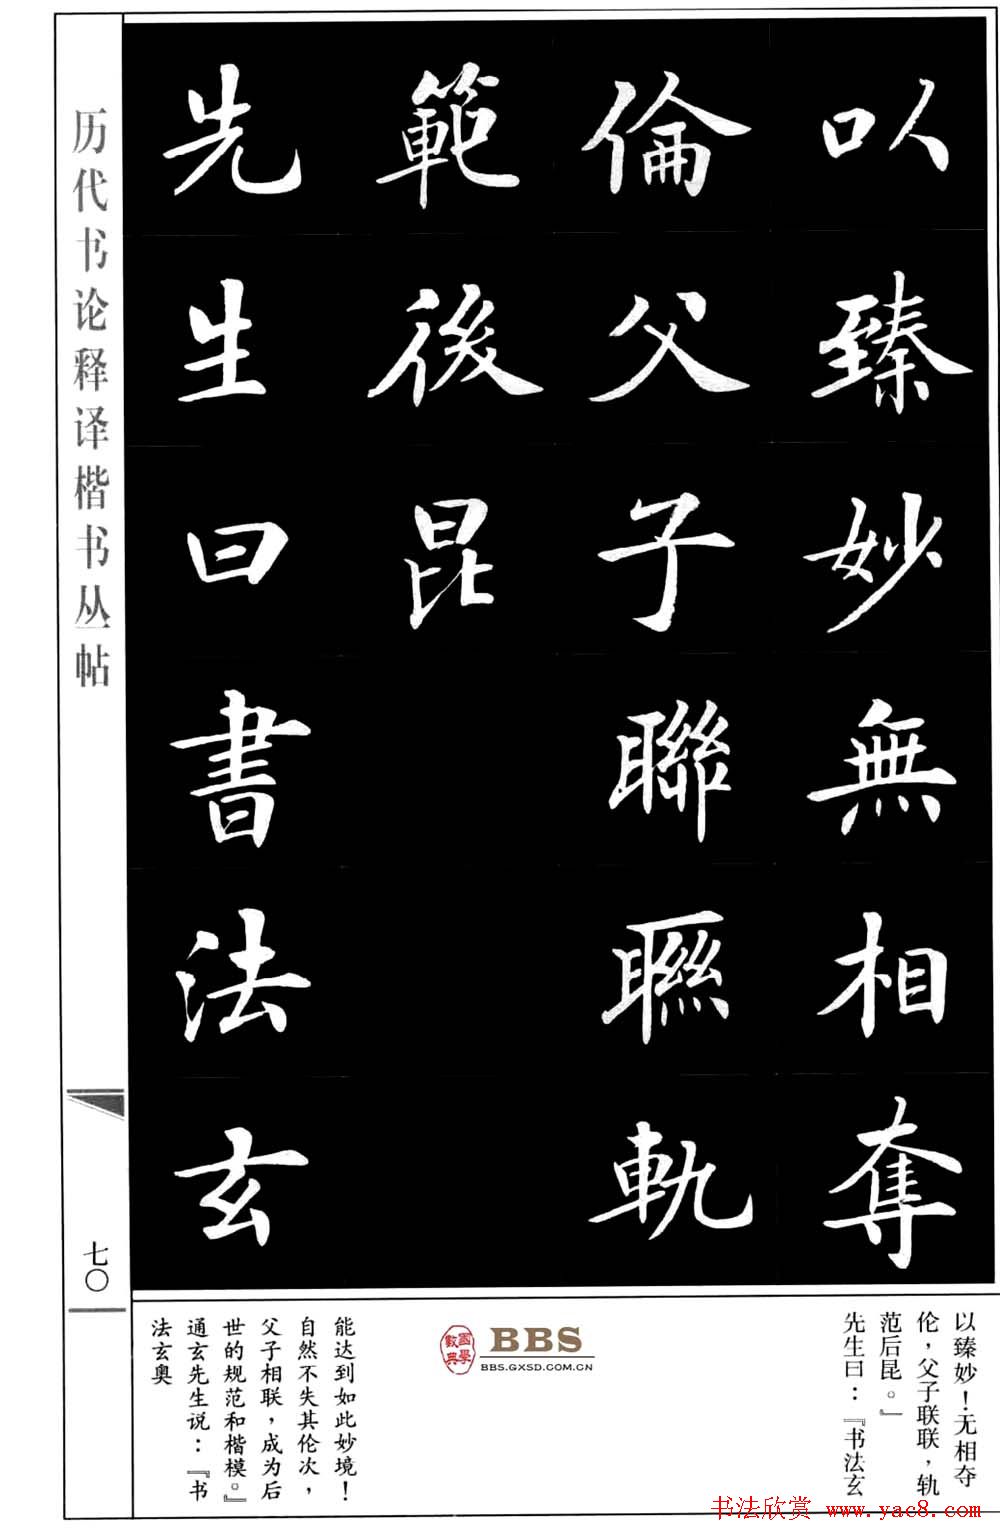 以臻妙無相奪
倫父子聯聯軌
範後昆
先生曰書法玄
历代书论释译楷书丛帖
七〇
以臻妙！无相夺
伦，父子联联，轨
范后昆。』
先生曰：『书法玄
國學數典
BBS
BBS.GXSD.COM.CN
能达到如此妙境！
自然不失其伦次，
父子相联，成为后
世的规范和楷模。』
通玄先生说：『书
法玄奥
书法欣赏 www.yac8.com